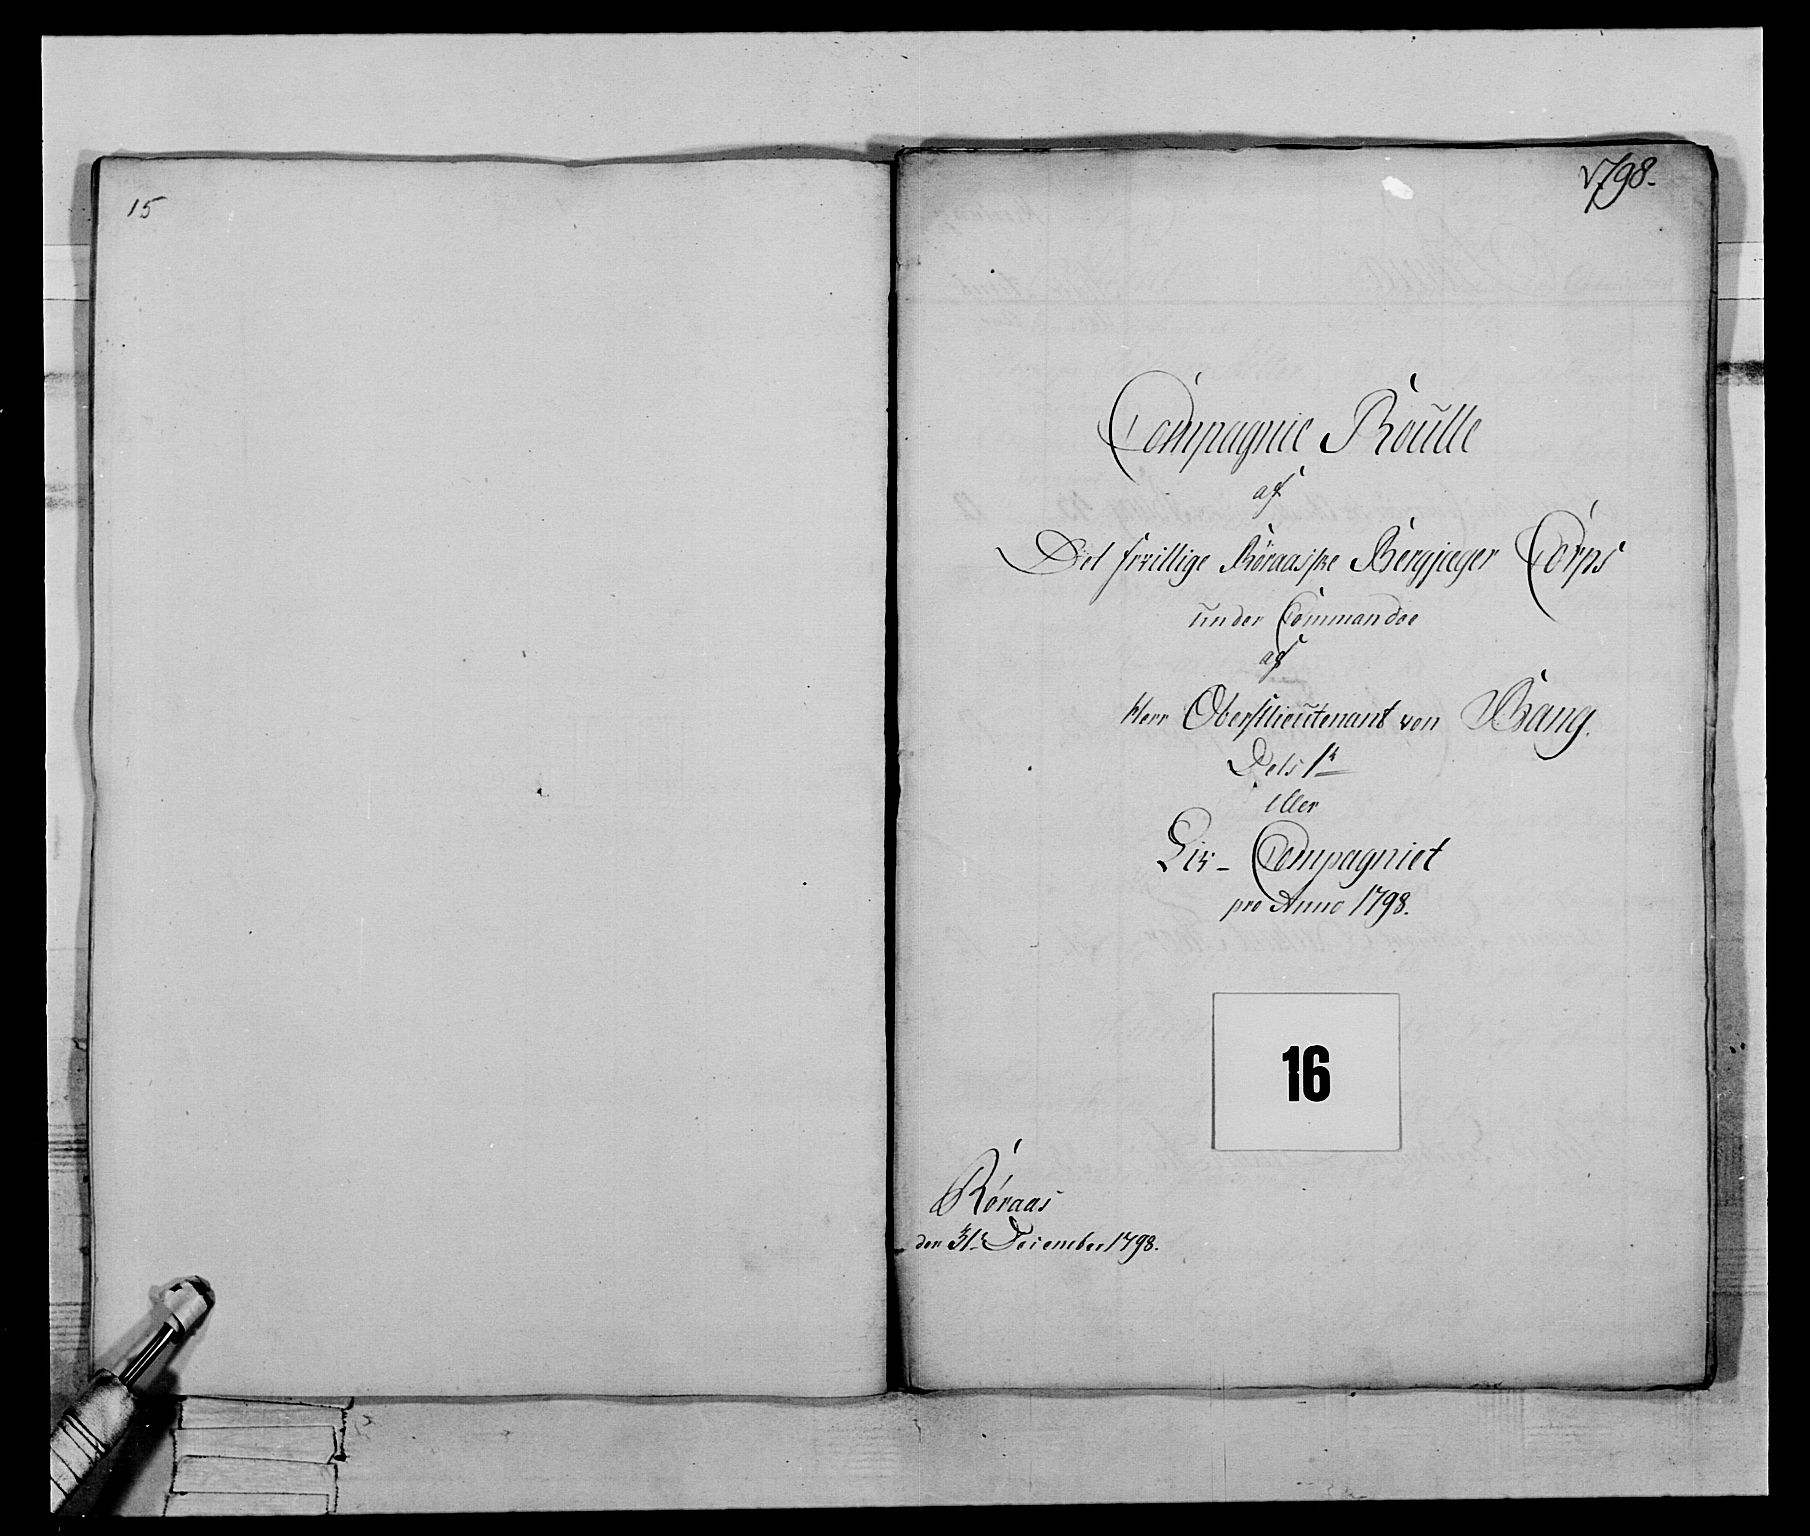 15
1798.
Compagnie Roülle
af
Det frivillige Røraaiske Bergjeger Corps
ünder Commandoe
af
Herr Oberstlieütenant von Bang.
Dets 1te
eller
Liv - Compagniet
pro Anno 1798.
16
Røraas
den 31te December 1798.